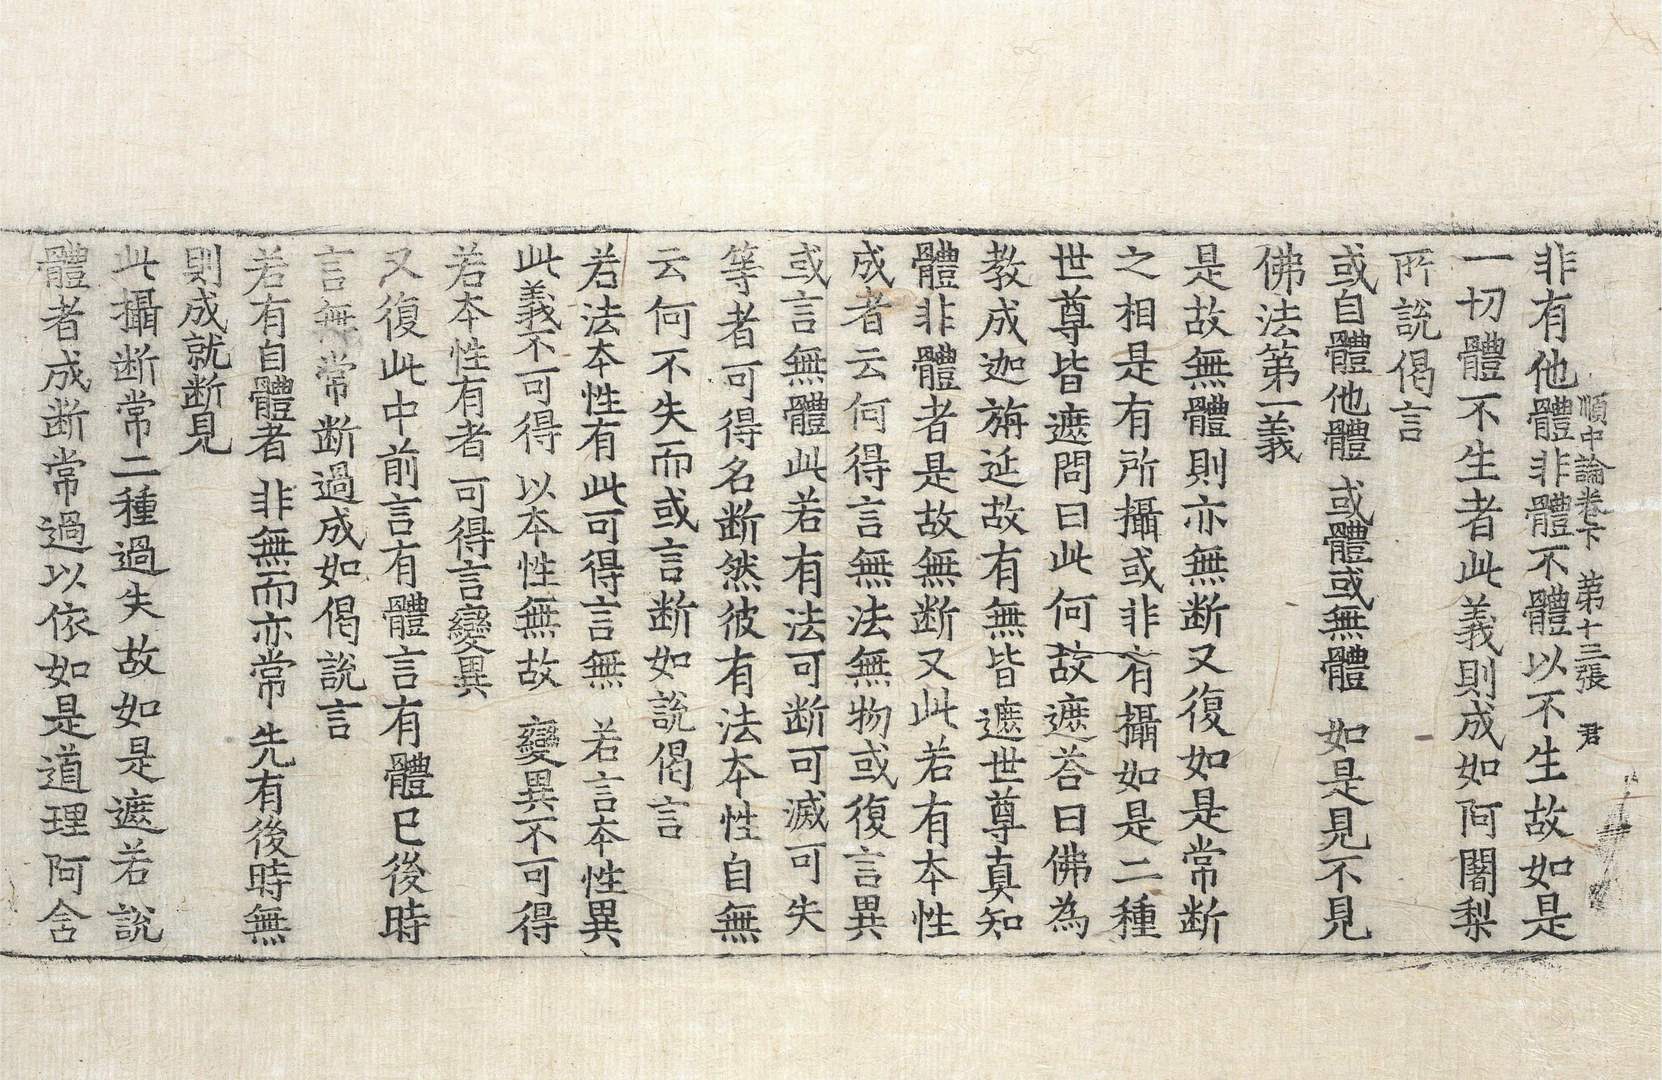 順中論卷下 第十三張 君
非有他體非體不體以不生故如是
一切體不生者此義則成如阿闍梨
所說偈言
或自體他體 或體或無體 如是見不見
佛法第一義
是故無體則亦無断又復如是常断
之相是有所攝或非有攝如是二種
世尊皆遮問曰此何故遮荅曰佛為
教成迦旃延故有無皆遮世尊真知
體非體者是故無断又此若有本性
成者云何得言無法無物或復言異
或言無體此若有法可断可滅可失
等者可得名断然彼有法本性自無
云何不失而或言断如說偈言
若法本性有此可得言無 若言本性異
此義不可得 以本性無故 變異不可得
若本性有者 可得言變異
又復此中前言有體言有體已後時
言無常断過成如偈說言
若有自體者 非無而亦常 先有後時無
則成就断見
此攝断常二種過失故如是遮若說
體者成断常過以依如是道理阿含